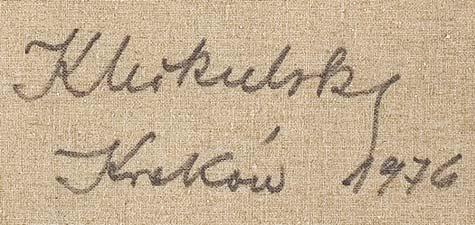 KMikulski
Kraków 1976